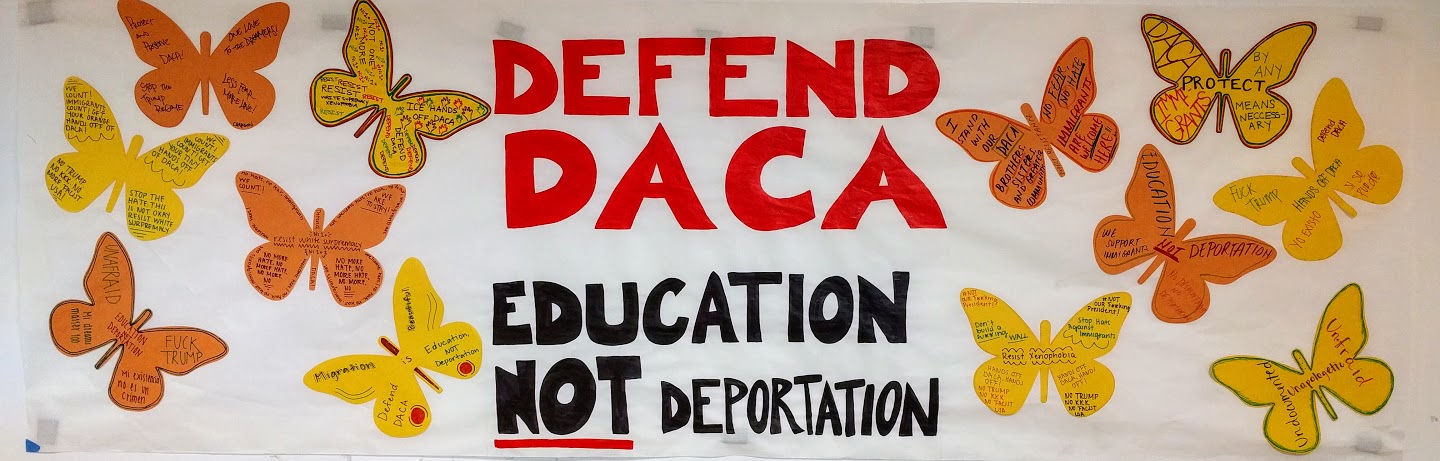 DEFEND
DACA
EDUCATION
NOT DEPORTATION
PROTECT
AND
PRESERVE
DACA!
ONE LOVE
TO THE DREAMERS!
STOP THE
TRUMP
REGIME
LESS FEAR,
MORE LOVE!
NOT ONE
MORE
RESIST RESIST
RESIST
RESIST
WHITE SUPREMACY
XENOPHOBIA
RESIST
ICE HANDS
OFF DACA
DEFEND
DACA
WE
COUNT!
IMMIGRANTS
COUNT! GET
YOUR ORANGE
HANDS OFF OF
DACA!
WE
COUNT!
IMMIGRANTS
COUNT! GET
YOUR TINY
HANDS OFF
OF DACA!
NO TRUMP
NO KKK
NO FACIST
USA!
STOP THE
HATE THIS
IS NOT OKAY
RESIST WHITE
SURPREMACY
WE
COUNT!
WE
ARE
HERE
TO STAY!
Resist white surpremacy
NO MORE
HATE, NO
MORE HATE,
NO MORE,
NO
NO MORE
HATE, NO
MORE HATE,
NO MORE,
NO
!!
UNAFRAID
Mi dream
matter too
EDUCATION
NOT
DEPORTATION
FUCK
TRUMP
Mi existencia
no es un
crimen
Migration
is
Beautiful
Education
NOT
Deportation
Defend
DACA
I
STAND
WITH
OUR
DACA
BROTHERS,
SISTERS,
AND
COMMUNITY
NO FEAR
NO HATE
IMMIGRANTS
ARE
WELCOME
HERE!!
DACA
IMMI
GRANTS
PROTECT
BY
ANY
MEANS
NECCESS-
ARY
EDUCATION
NOT DEPORTATION
WE
SUPPORT
IMMIGRANTS
DEFEND
DACA
FUCK
TRUMP
HANDS OFF DACA
SI SE
PUEDE
YO EXISTO
#NOT
OUR Fucking
President!
#NOT
OUR Fucking
President!
Don't
build a
WALL
Stop Hate
Against
Immigrants
Resist Xenophobia
HANDS OFF
DACA, HANDS
OFF!
NO TRUMP
NO KKK
NO FACIST
USA
HANDS OFF
DACA, HANDS
OFF!
NO TRUMP
NO KKK
NO FACIST
USA
Undocumented
Unapologetic
Unafraid